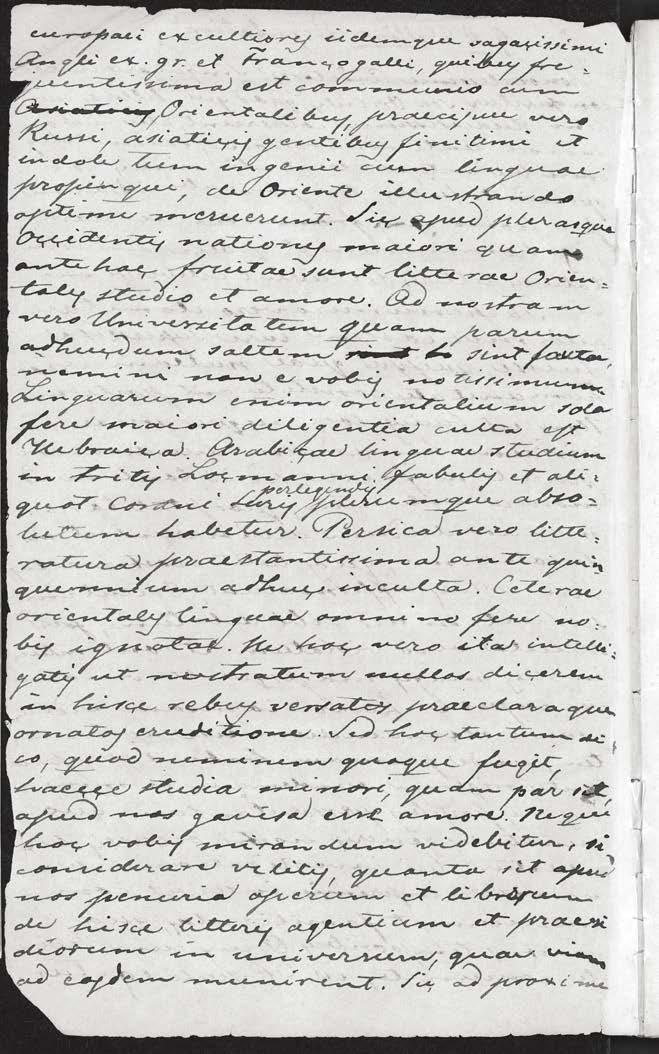 europaei excultiores iidemque sagacissimi
Angli ex. gr. et Francogalli, quibus fre-
quentissima est communio cum
Asiaticis Orientalibus, praecipue vero
Russi, asiaticis gentibus finitimi et
indole tum ingenii cum linguae
propinqui, de Oriente illustrando
optime meruerunt. Sic apud plerasque
Occidentis nationes maiori quam
antehac fruitae sunt litterae Orien-
tales studio et amore. Ad nostram
vero Universitatem quam parum
adhucdum saltem sint facta,
nemini non e vobis notissimum.
Linguarum enim orientalium sola
fere maiori diligentia culta est
Hebraica. Arabicae linguae studium
in tritis Locmanni fabulis et ali-
perlegendis
quot Corani Suris plerumque abso-
lutum habetur. Persica vero litte-
ratura praestantissima ante quin
quennium adhuc inculta. Ceterae
orientales linguae omnino fere no-
bis ignotae. Ne hoc vero ita intelli-
gatis ut nostratum nullos dicerem
in hisce rebus versatos praeclaraque
ornatos eruditione. Sed hoc tantum di
co, quod neminem quoque fugit,
haecce studia minori, quam par sit,
apud nos gavisa esse amore. Neque
hoc vobis mirandum videbitur, si
considerare velitis, quanta sit apud
nos penuria operum et librorum
de hisce litteris agentium et praesi
diorum in universum, quae viam
ad easdem munirent. Sic ad proxime